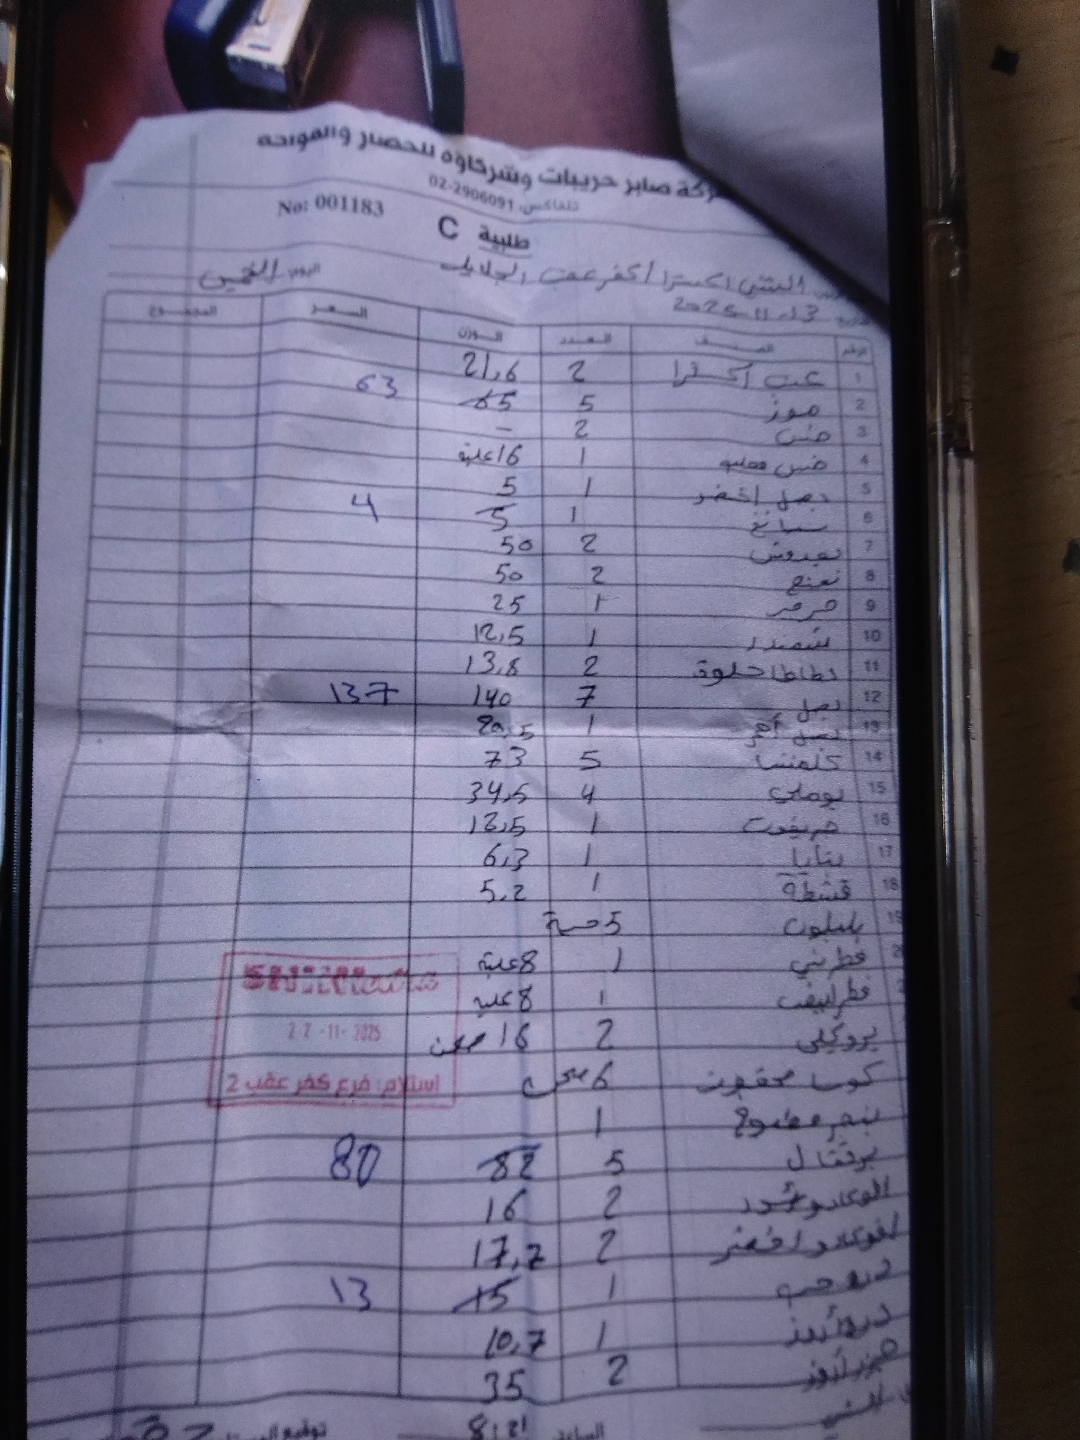 شركة صابر حريبات وشركاؤه للخضار والفواكه
تلفاكس: 02-2906091
No: 001183
طلبية C
الثني اكسترا / كفر عقب الجلايل اليوم: الخميس
2025-11-13
الرقم الصنف العدد الوزن السعر المجموع
1 عنب اكسترا 2 21,6
2 موز 5 65 63
3 خس 2 -
4 خس 1 16 علبة
5 بصل اخضر 1 5
6 سبانخ 1 5 4
7 بقدونس 2 50
8 نعنع 2 50
9 جرجير 1 25
10 شمندر 1 12,5
11 بطاطا حلوة 2 13,8
12 بصل 7 140 137
13 بصل أحمر 1 20,5
14 كلمنتينا 5 73
15 بوملي 4 34,5
16 جريفوت 1 12,5
17 بابايا 1 6,3
18 قشطة 1 5,2
19 5 حبة
فطر بني 1 8 علبة
فطر ابيض 1 8 علبة
بروكلي 2 16 صحن
كوسا محفورة 6 صحن
بنجر مطبوخ 1
برتقال 5 82 80
افوكادو أسود 2 16
افوكادو اخضر 2 17,7
ذرة حب 1 15 13
1 10,7
جزر 2 35
22-11-2025
استلام: فرع كفر عقب 2
الساعة 8:21 توقيع